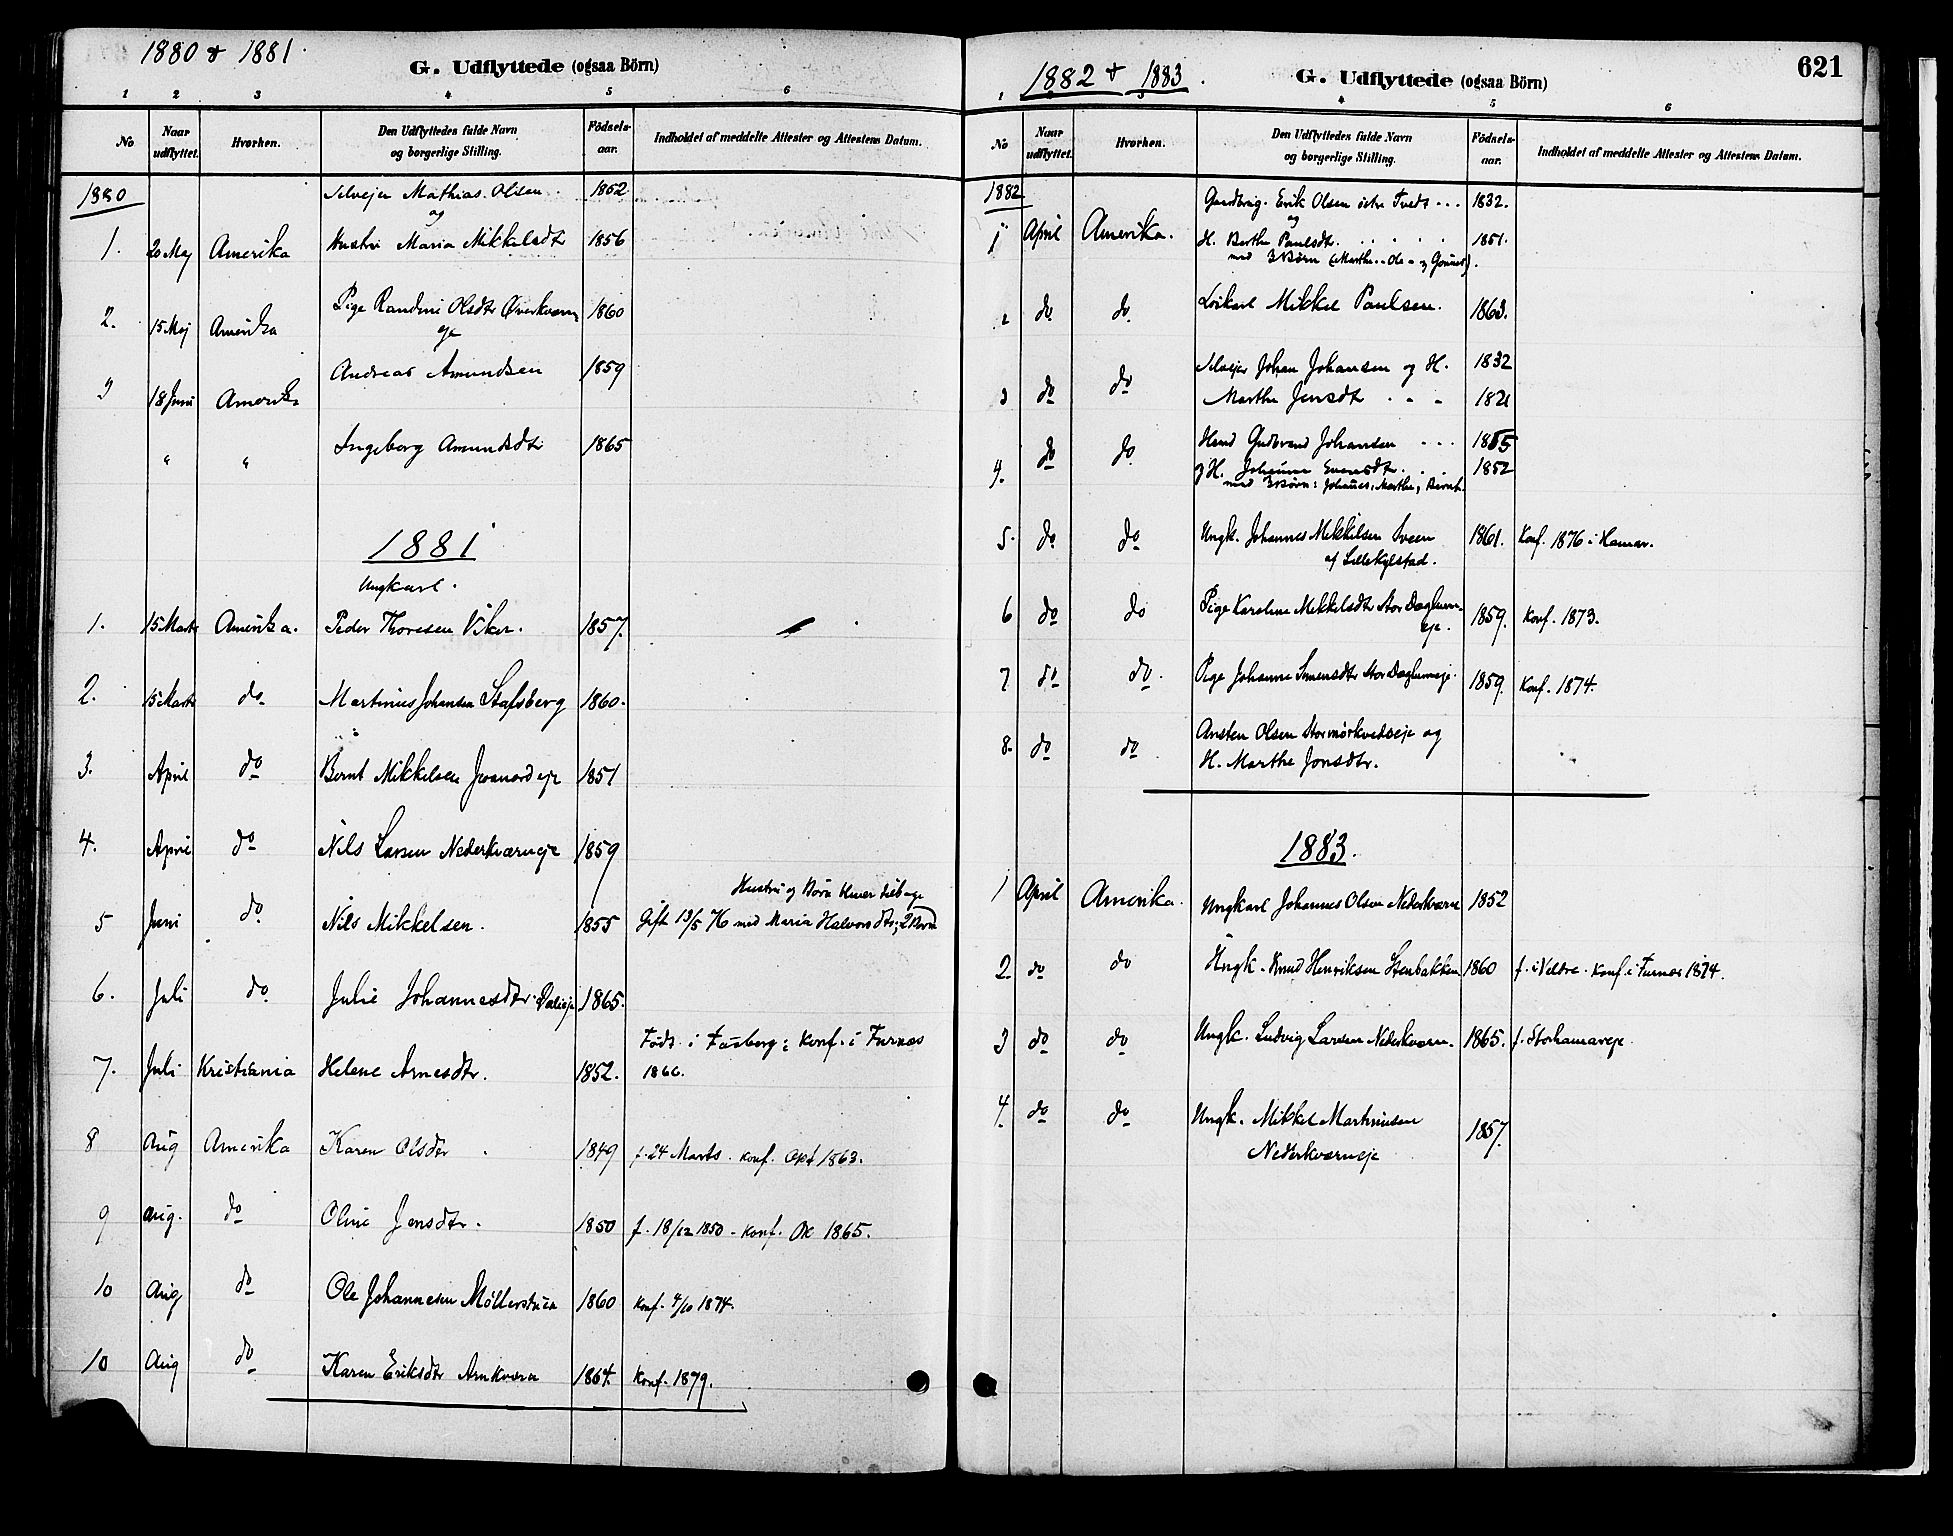 1880 & 1881.
G. Udflyttede (ogsaa Börn)
1 2 3 4 5 6
No Naar udflyttet. Hvorhen. Den Udflyttedes fulde Navn og borgerlige Stilling. Födsels-aar. Indholdet af meddelte Attester og Attestens Datum.
1880 Selvejer Mathias Olsen 1852
og
1. 20 Maj Amerika Hustru Maria Mikkelsdtr 1856
2. 15 Maj Amerika Pige Randine Olsdtr Øverkværn 1860
eje
3 18 Juni Amerika Andreas Amundsen 1859
" " Ingeborg Amundsdtr 1865
1881
Ungkarl.
1. 15 Marts Amerika. Peder Thoresen Viker. 1857.
2. 15 Marts do Martinius Johansen Stafsberg 1860.
3. April do Bernt Mikkelsen eje 1851
4. April do Nils Larsen Nederkværneje 1859
Hustru og Börn tilbage
5 Juni do Nils Mikkelsen. 1855 Gift 13/5 76 med Maria Halvorsdtr; 2 Börn
6. Juli do Julie Johannesdtr. 1865.
Födt i Faaberg; Konf. i Furnes
7. Juli Kristiania Helene Arnesdtr. 1852. 1866.
8 Aug Amerika Karen Olsdtr 1849 f. 24 Marts. Konf. Okt 1863.
9 Aug. do Oline Jensdtr. 1850 f. 18/12 1850 - Konf. Ok 1865.
10 Aug do Ole Johannesen Möllerstuen 1860 Konf. 4/10 1874.
10 Aug do Karen Eriksdtr Arnkværn 1864. Konf. 1879.
1882 + 1883.
G. Udflyttede (ogsaa Börn)
621
1 4 5 6
No Naar udflyttet. Hvorhen. Den Udflyttedes fulde Navn og borgerlige Stilling. Födsels-aar. Indholdet af meddelte Attester og Attestens Datum.
1882 Gaardbrug. Erik Olsen östre Tveds 1832.
og
1 April Amerika. H. Berthe Paulsdtr. 1851.
med 3 Börn (Marthe, Ole og Gunner).
2 do do Löskarl Mikkel Paulsen. 1863.
Selvejer Johan Johansen og H. 1832
3 do do Marthe Jensdtr 1821
do do Hmd Gudbrand Johansen 1855
4. og H. Johanne Evensdtr. 1852
med 3 Börn: Johannes, Marthe, Bernt.
5. do do Ungk. Johannes Mikkelsen Sveen 1861. Konf. 1876 i Hamar.
af Lillekylstad.
6 do do Pige Karoline Mikkelsdtr Stor Daglum- 1859. Konf. 1873.
eje.
7 do do. Pige Johanne Simensdtr Stor Daglumeje. 1859. Konf. 1874.
8. do do Ansten Olsen Stormörkvedseje og
H. Marthe Jonsdtr.
1883.
1 April Amerika. Ungkarl Johannes Olsen Nederkværn 1852
2. do do Ungk. Knud Henriksen Stenbakken 1860 f. i Veldre. Konf. i Furnes 1874.
3 do do Ungk. Ludvig Larsen Nederkværn. 1865. f. Storhamareje.
4. do do Ungk. Mikkel Martiniusen 1857.
Nederkværneje